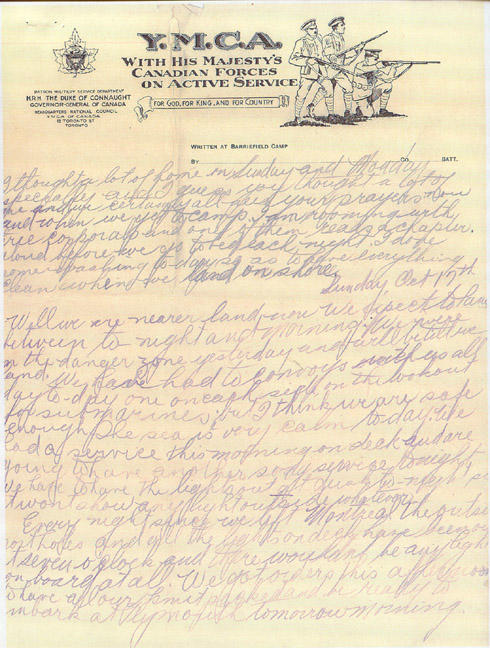 Y.M.C.A.
WITH HIS MAJESTY'S
CANADIAN FORCES
ON ACTIVE SERVICE
PATRON MILITARY SERVICE DEPARTMENT
H.R.H. THE DUKE OF CONNAUGHT
GOVERNOR-GENERAL OF CANADA
HEADQUARTERS NATIONAL COUNCIL
Y.M.C.A. OF CANADA
TORONTO ST
TORONTO
FOR GOD, FOR KING, AND FOR COUNTRY
WRITTEN AT BARRIEFIELD CAMP
BY CO. BATT.
I thought a lot of home on Sunday and Monday
specially and I guess you thought a lot of
me and we certainly all need your prayers now
and when we get to camp. I am rooming with
three corporals and one of them reads a chapter
aloud before we go to bed each night. I done
some washing to-day so as to have everything
clean when we land on shore.
Sunday Oct 17th
Well we are nearer land now we expect to land
between to night and morning. We were
in the danger zone yesterday and will be till we
land. We have had to convoys with us all
day to-day one on each side on the lookout
for submarines, but I think we are safe
enough. The sea is very calm to day. We
had a service this morning on deck and are
going to have another song service tonight
we have to have the lights out at dusk to-night so
it wont show any light outside whatever.
Every night since we left Montreal the outside
port holes and all the lights on deck have been out
at seven o'clock and there wouldnt be any lights
on board at all. We got orders this afternoon
to have all our kit packed and be ready to
embark at Plymouth tomorrow morning.